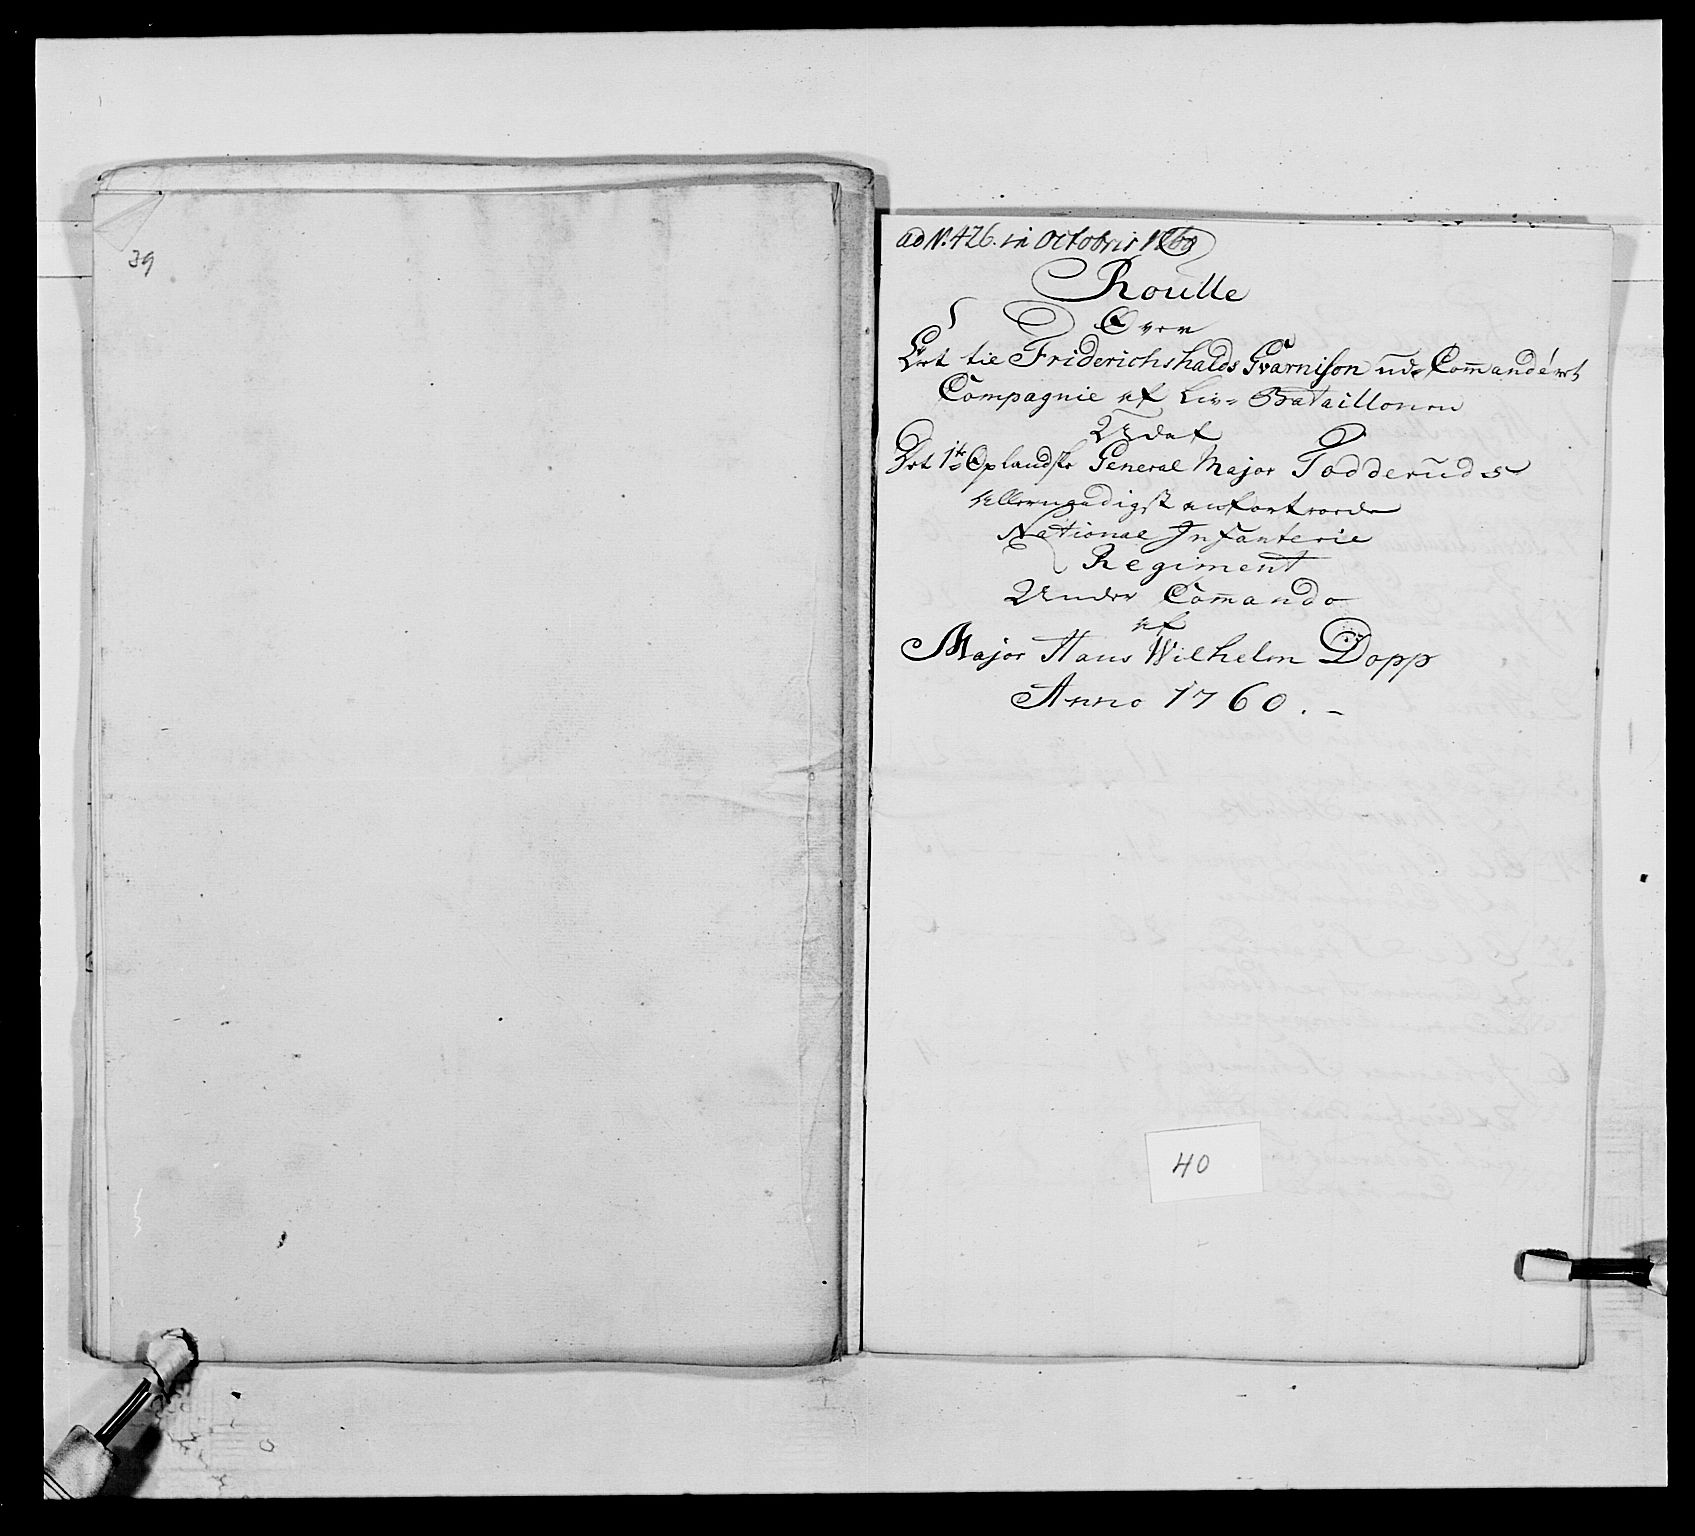 39
ad N. 426. in Octobris 1760
Roulle
Over
Det til Friderichshalds Gvarnison ud Commandert
Compagnie af Liv- Bataillonen
Udaf
Det 1te Oplandske General Major Todderuds
Allernaadigst anfortroede
National Infanterie
Regiment
Under Commando
af
Major Hans Wilhelm Döpp
Anno 1760. -
40